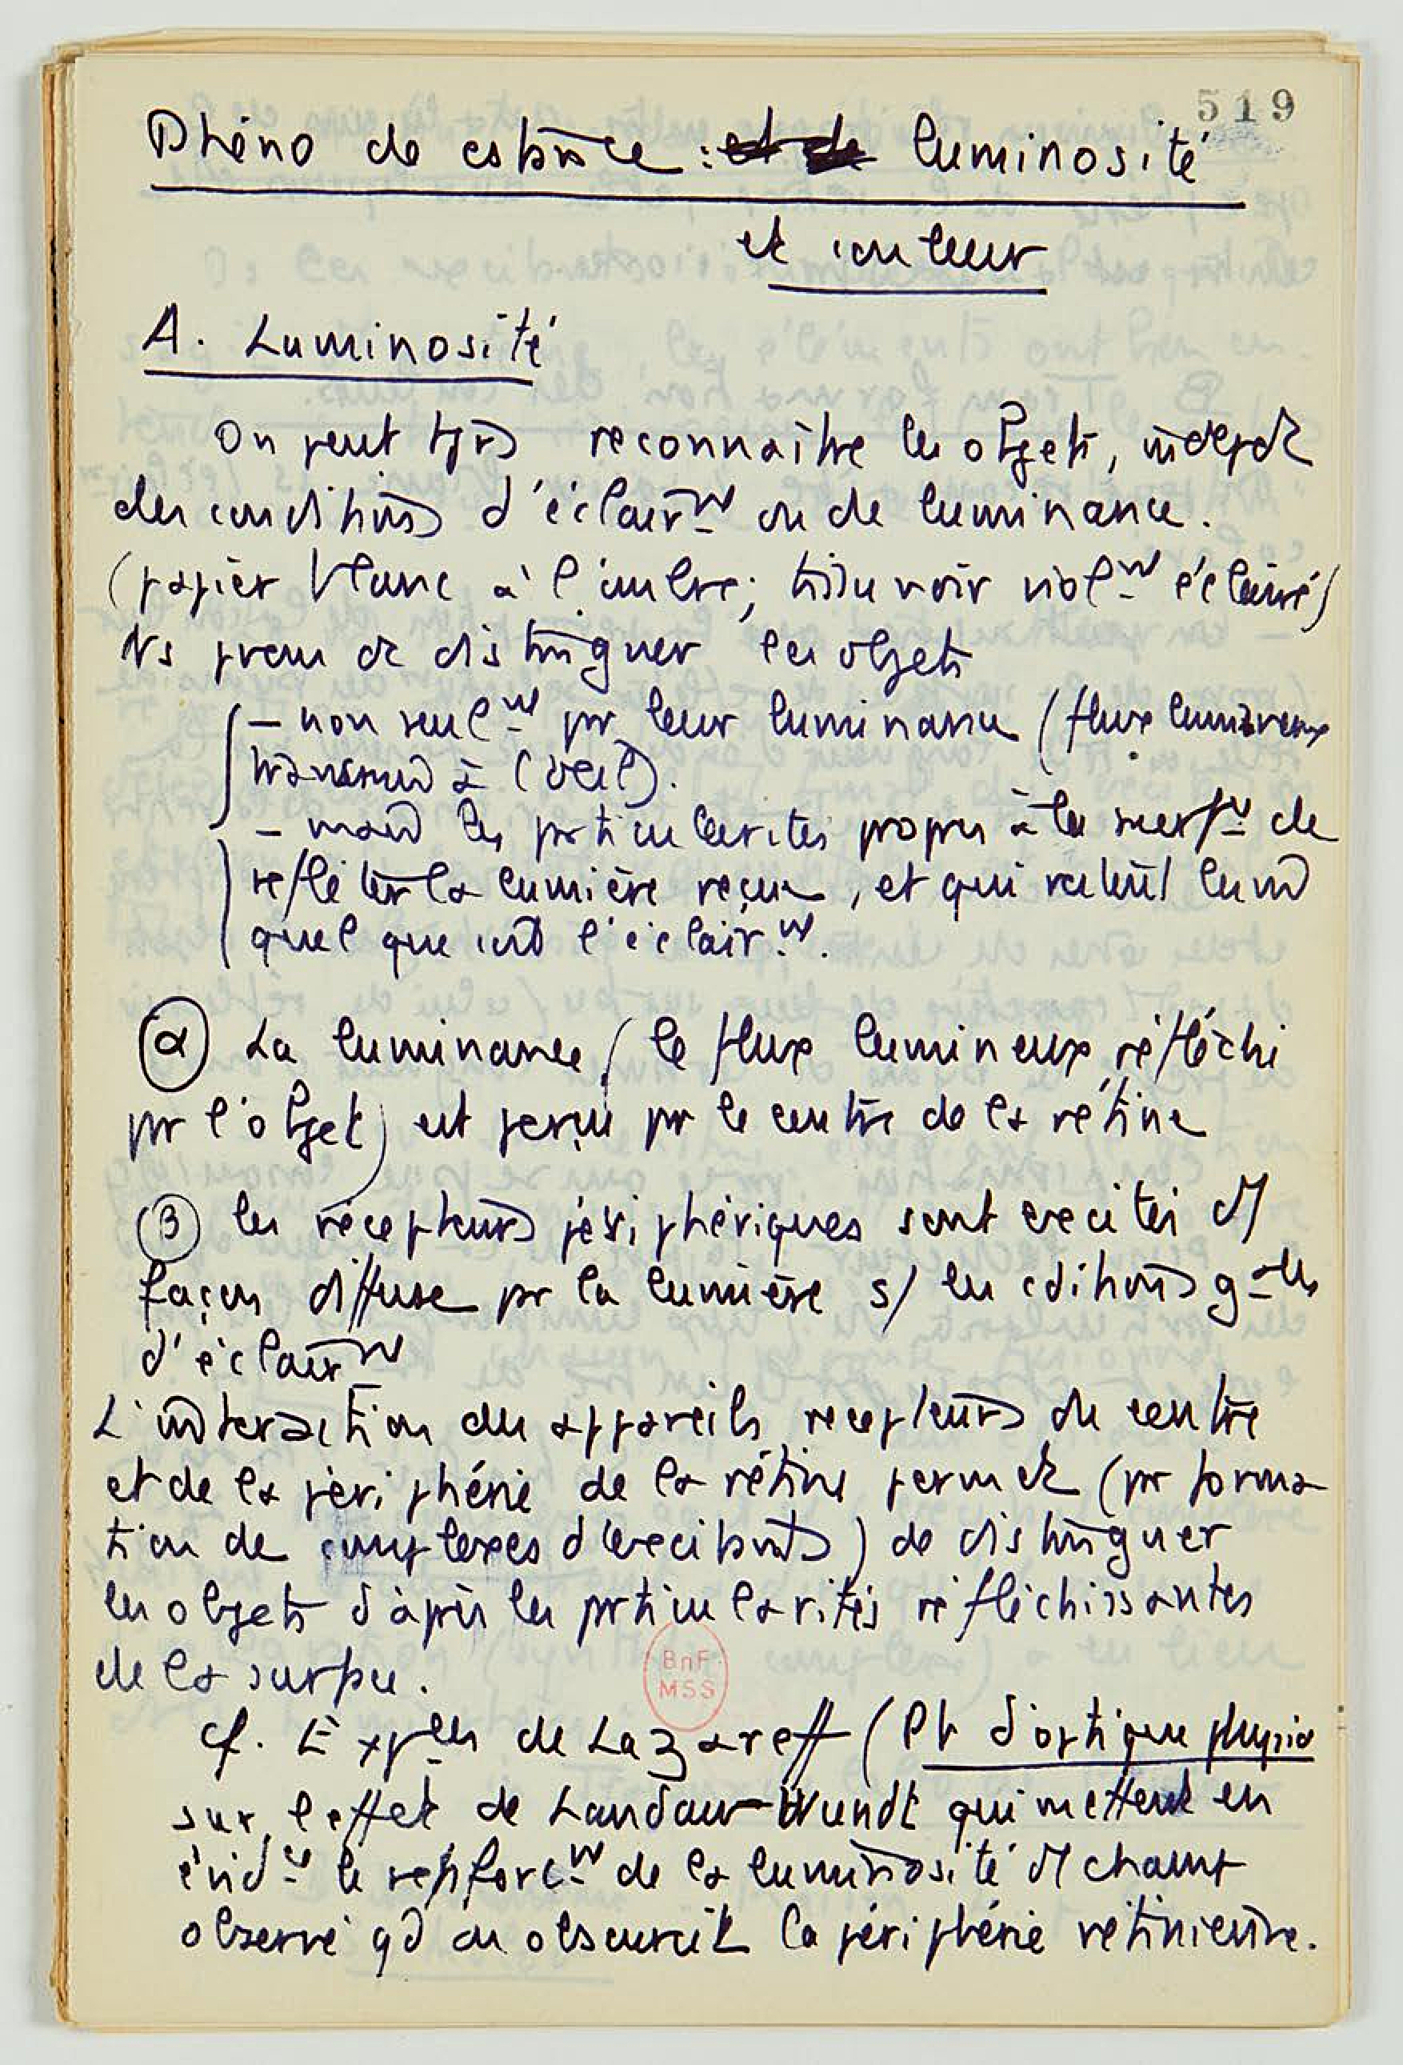 519
Phéno de cstance : et de luminosité
et couleur
A. Luminosité
On peut tjrs reconnaître les objets, indepdt
des conditions d'éclairmt ou de luminance.
(papier blanc à l'ombre ; tissu noir violmt éclairé)
Ns pvons de distinguer les objets
– non seulmt pr leur luminance (flux lumineux
transmis à l'œil).
– mais les prticularités propres à la surface de
refléter la lumière reçue, et qui restent les m̂
quel que soit l'éclairmt.
α La luminance (le flux lumineux réfléchi
pr l'objet) est perçu pr le centre de la rétine
β les récepteurs périphériques sont excités d/
façon diffuse pr la lumière s/ les cditions gales
d'éclairmt
L'interaction des appareils récepteurs du centre
et de la périphérie de la rétine permet (pr forma
tion de complexes d'excitants) de distinguer
les objets d'après les prticularités réfléchissantes
de la surface.
cf. Expces de Lazareff (Pb d'optique physio
sur l'effet de Landau-Wundt qui mettent en
évidce le renforcmt de la luminosité d/ champ
observé qd on obscurcit la périphérie rétinienne.
BnF
MSS